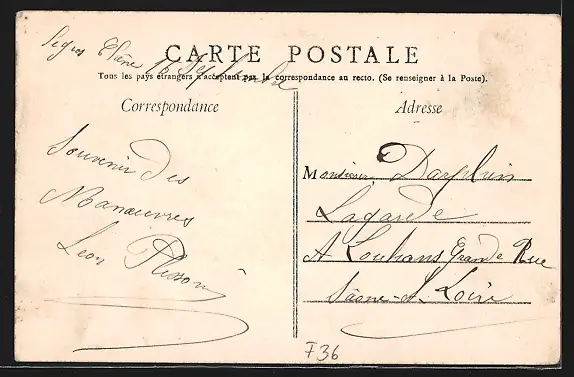 16 Septembre
CARTE POSTALE
Tous les pays étrangers n'acceptent pas la correspondance au recto. (Se renseigner à la Poste).
Correspondance
Adresse
Souvenir des
Manœuvres
Leon
Monsieur Dauphin
Lagarde
A Louhans Grande Rue
Saône-et-Loire
F36